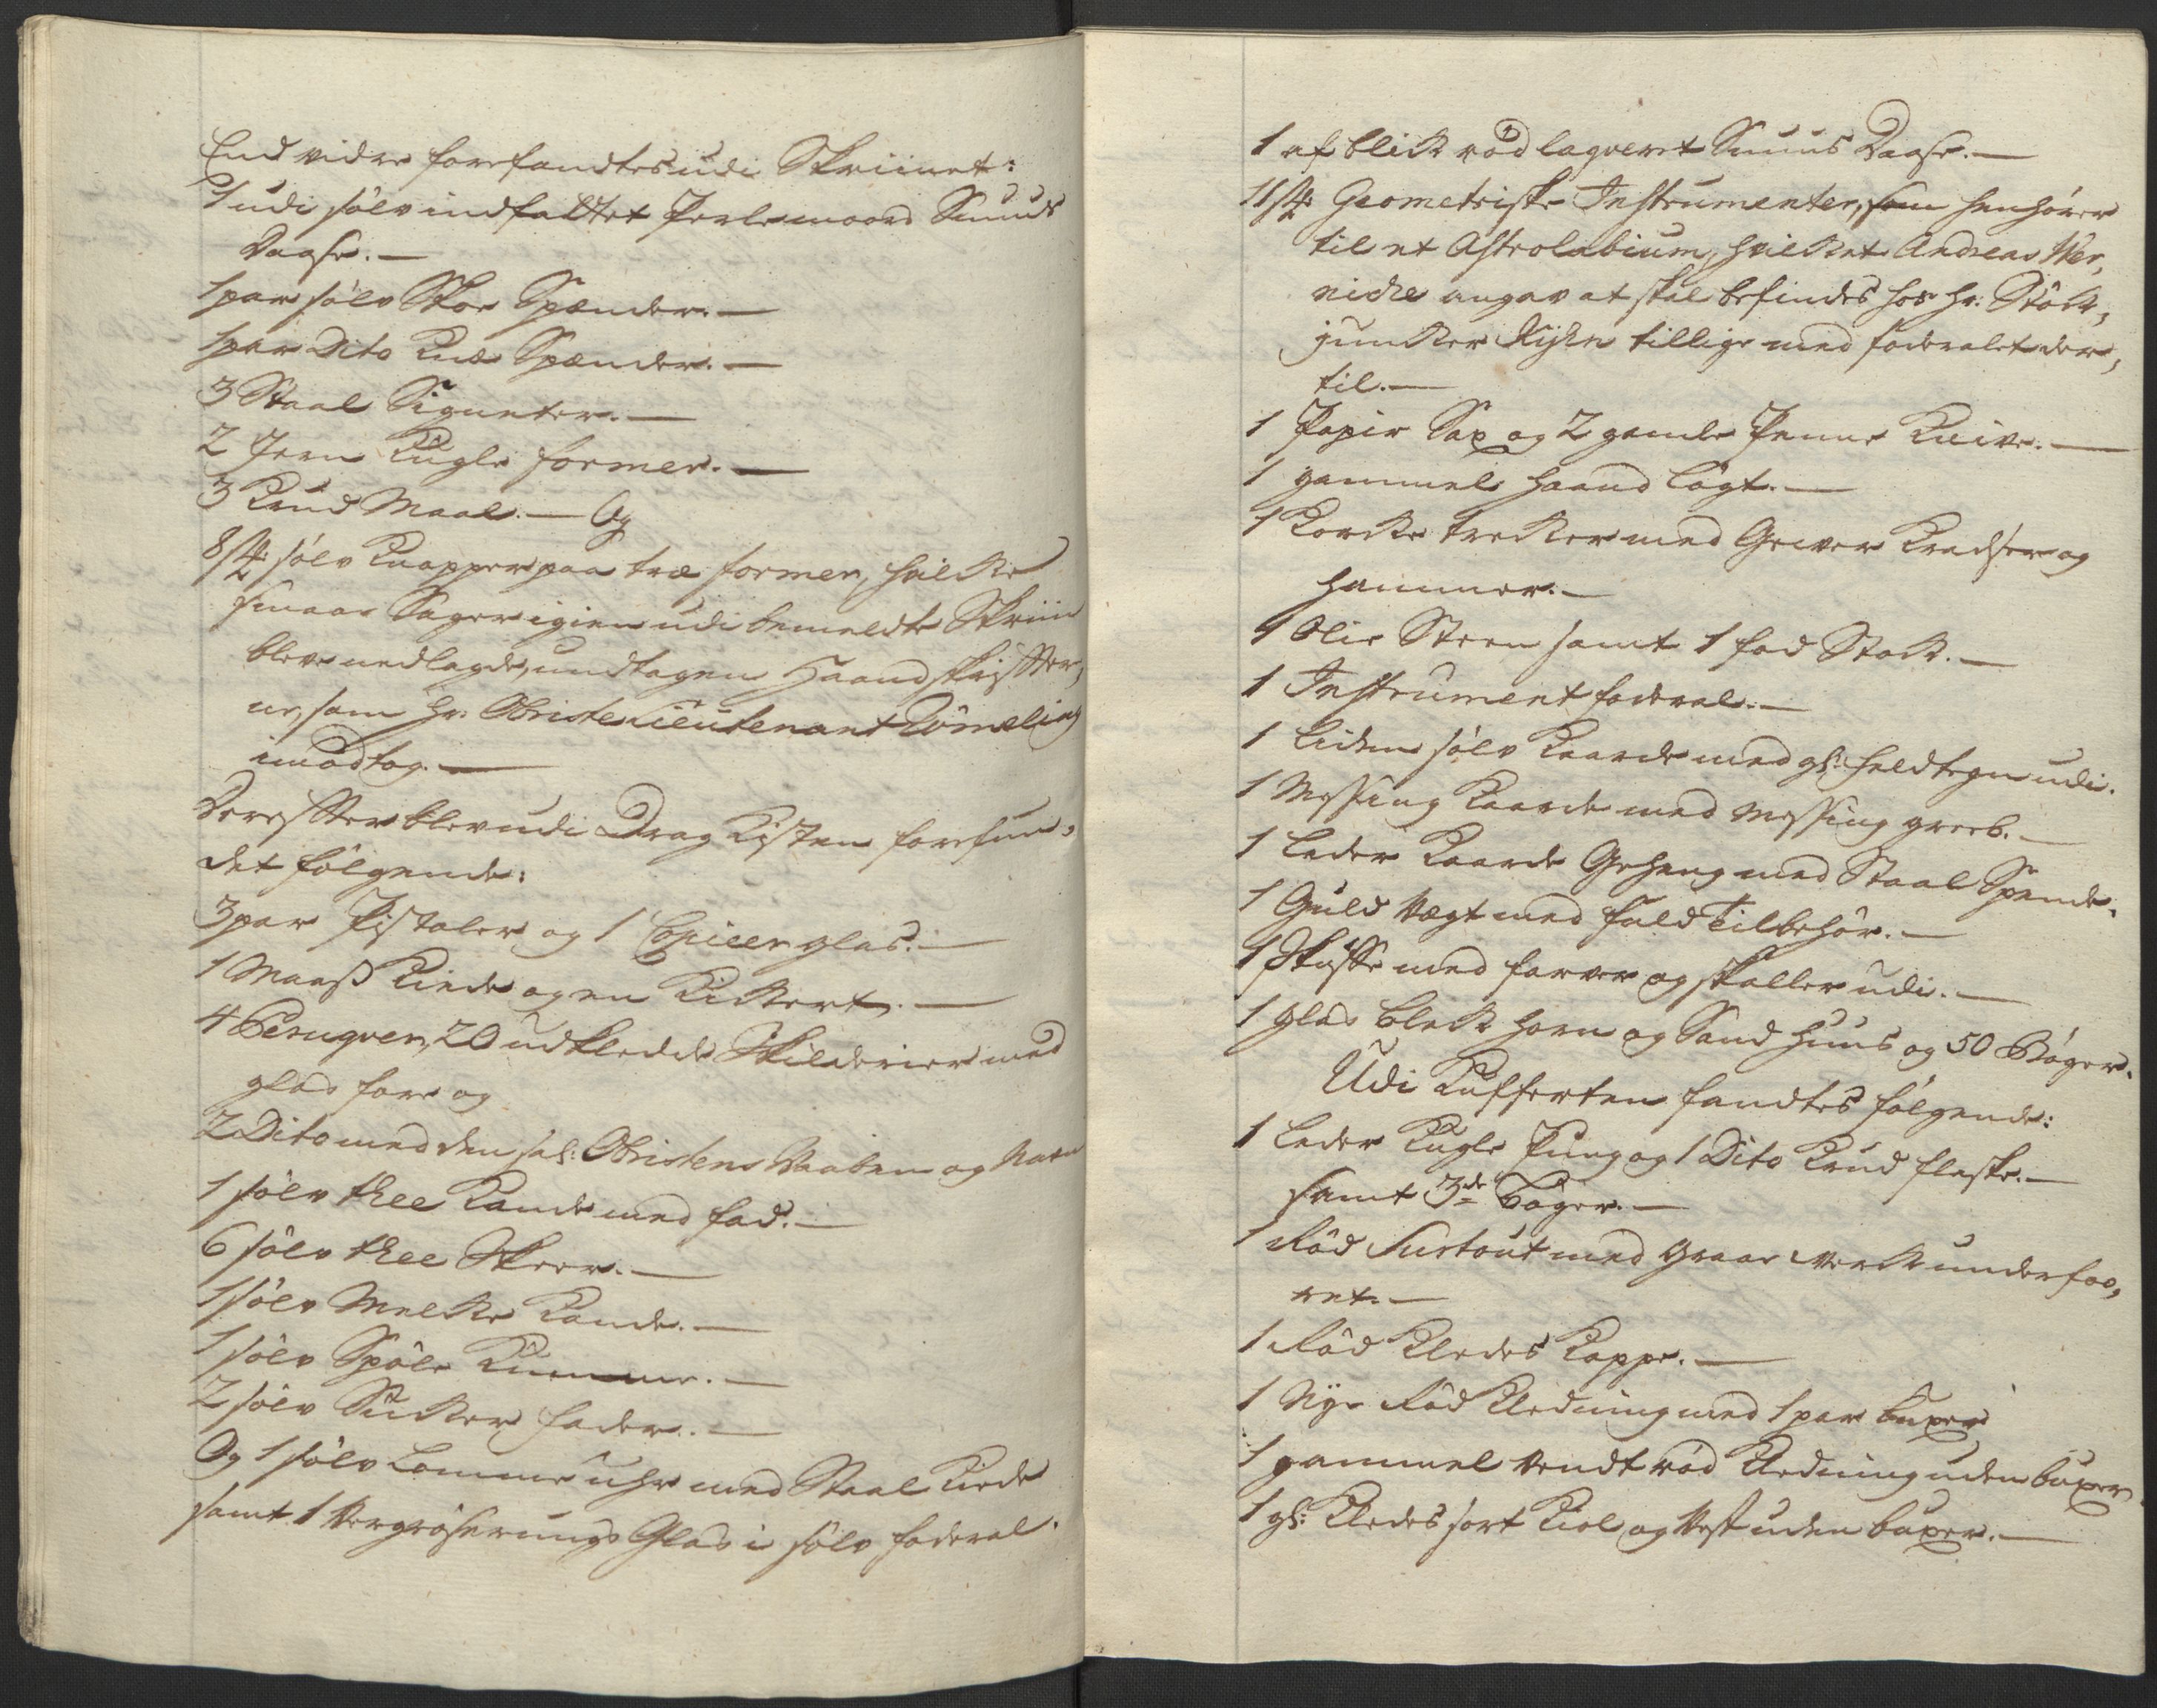 End vidre forefandtes udi Skriinet:
1 udi sølv indfattet Perlemoors Snuus
Daase. —
1 par sølv Skoe Spænder. —
1 par Dito Knæ Spænder. —
3 Staal Signeter. —
2 Jern Kugle former. —
3 Krud Maal. — Og
8 st: sølv Knapper paa træ former, hvilke
smaae Sager igien udi bemeldte Skriin
bleve nedlagde, undtagen Haandskrifter,
ne, som Hr. Obristelieutenant Römeling
imodtog. —
Derefter blev udi Drag Kisten forefun,
det følgende:
3 par Pistoler og 1 Copieer glas. —
1 Maass Kiede og en Kikkert. —
4 Peruqver, 20 udklædde Skilderier med
glas fore og
2 Dito med den sal: Obristens Vaaben og Navn
1 sølv thee Kande med fad. —
6 sølv thee Skeer. —
1 sølv Melke Kande. —
1 sølv Spøle Kumme. —
2 sølv Sukker fader. —
Og 1 sølv Lomme Uhr med Staal Kiede
samt 1 Vergröserungs Glas i sølv foderal.
1 af blik rød laqveret Snuus Daase. —
11 st: Geometriske Instrumenter, som henhører
til et Astrolabium, hvilket Andreas Wer,
niche angav at skal befindes hos Hr. Stük,
junker Rijsen tillige med foderalet der,
til. —
1 Papir Sax og 2 gamle Penne Knive. —
1 gammel haand Lögt. —
1 Korke trekker med Gever Kradser og
hammer. —
1 Olie Steen samt 1 fod Stok. —
1 Instrument foderal. —
1 Liden sølv Kaarde med gl: feldtegn udi.
1 Messing Kaarde med Messing greeb. —
1 Leder Kaarde Gehæng med Staal Spende.
1 Guld Vægt med fuld Tilbehør. —
1 Skuffe med farver og skaller udi. —
1 glas Blek horn og Sand huus og 50 Bøger.
Udi Kufferten fandtes følgende:
1 Leder Kugle Pung og 1 Dito Krud flaske. —
samt 3de Bøger. —
1 Rød Surtout med Graae Verk underfoe,
ret. —
1 Rød Klædes Kappe. —
1 Nye Rød Klædning med 1 par buxer
1 gammel vendt rød Klædning uden buxer.
1 gl: Klædes sort Kiol og Vest uden buxer. —